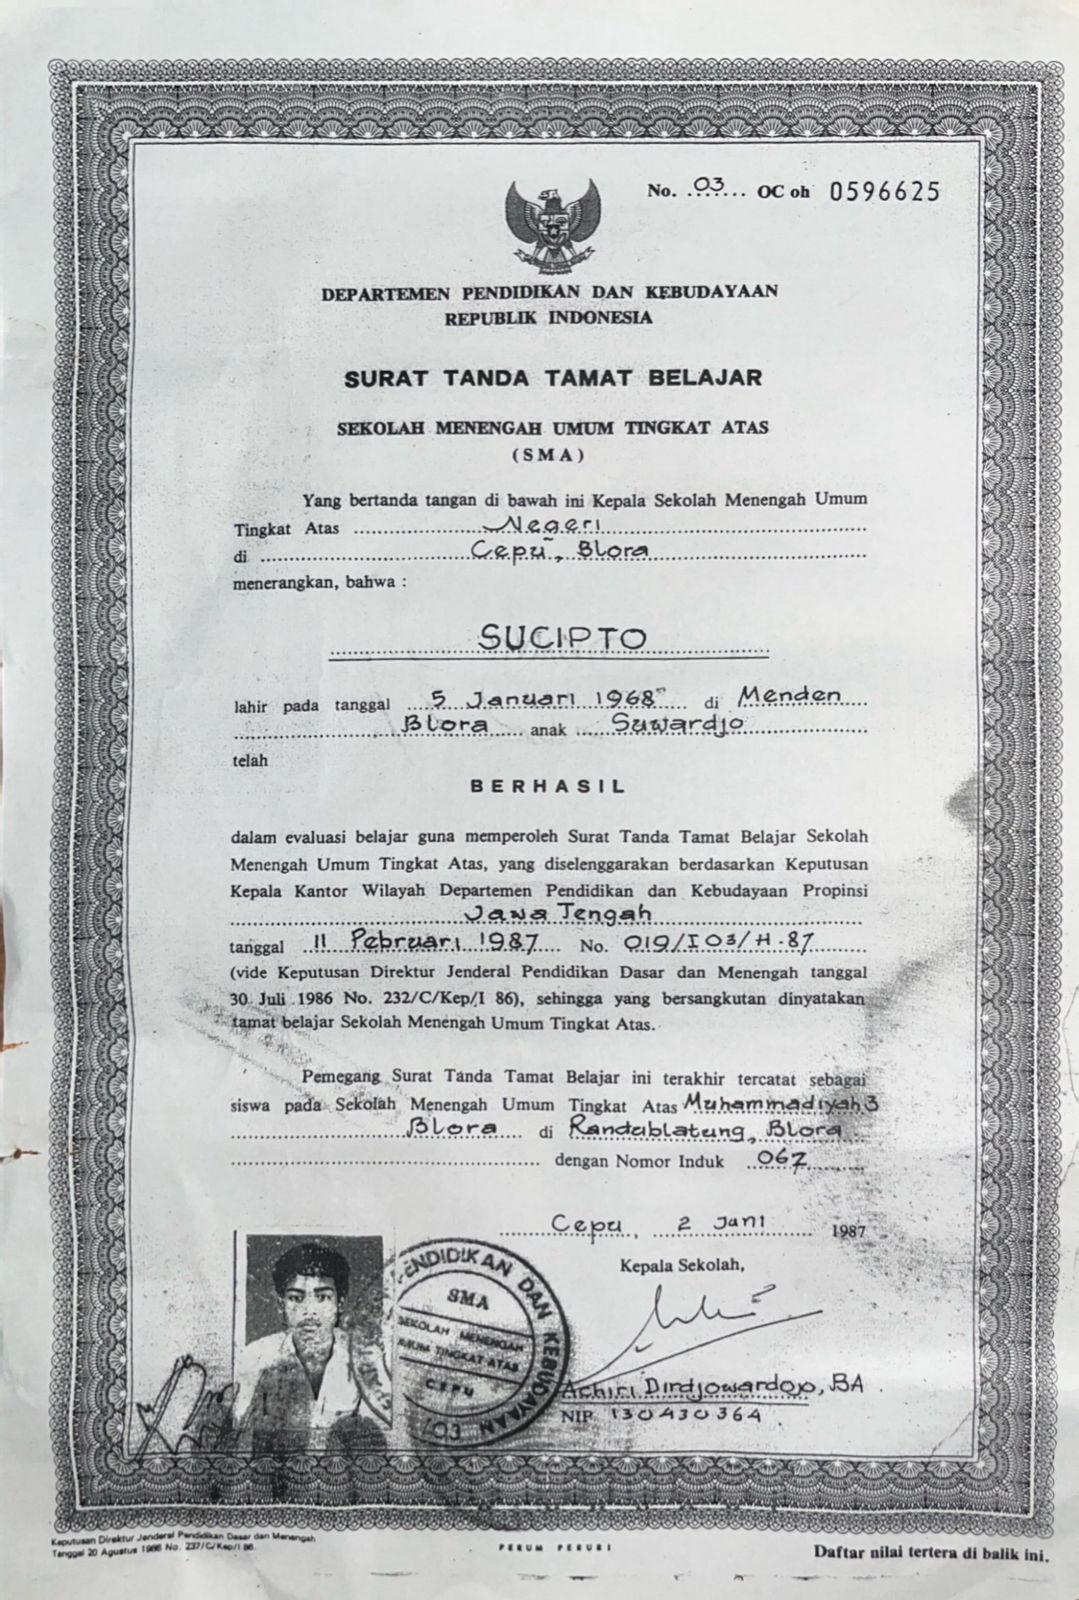 No. 03 OC oh 0596625
DEPARTEMEN PENDIDIKAN DAN KEBUDAYAAN
REPUBLIK INDONESIA
SURAT TANDA TAMAT BELAJAR
SEKOLAH MENENGAH UMUM TINGKAT ATAS
(SMA)
Yang bertanda tangan di bawah ini Kepala Sekolah Menengah Umum
Tingkat Atas Negeri
di Cepu, Blora
menerangkan, bahwa :
SUCIPTO
lahir pada tanggal 5 Januari 1968 di Menden
Blora anak Suwardjo
telah
BERHASIL
dalam evaluasi belajar guna memperoleh Surat Tanda Tamat Belajar Sekolah
Menengah Umum Tingkat Atas, yang diselenggarakan berdasarkan Keputusan
Kepala Kantor Wilayah Departemen Pendidikan dan Kebudayaan Propinsi
Jawa Tengah
tanggal 11 Pebruari 1987 No. 019/I03/H-87
(vide Keputusan Direktur Jenderal Pendidikan Dasar dan Menengah tanggal
30 Juli 1986 No. 232/C/Kep/I 86), sehingga yang bersangkutan dinyatakan
tamat belajar Sekolah Menengah Umum Tingkat Atas.
Pemegang Surat Tanda Tamat Belajar ini terakhir tercatat sebagai
siswa pada Sekolah Menengah Umum Tingkat Atas Muhammadiyah 3
Blora di Randublatung, Blora
dengan Nomor Induk 067
Cepu, 2 Juni 1987
Kepala Sekolah,
PENDIDIKAN DAN KEBUDAYAAN
SMA
SEKOLAH MENENGAH
UMUM TINGKAT ATAS
CEPU
Dirdjowardojo, BA
NIP. 130430364
Keputusan Direktur Jenderal Pendidikan Dasar dan Menengah
Tanggal 20 Agustus 1986 No. 237/C/Kep/I 86.
PERUM PERURI
Daftar nilai tertera di balik ini.